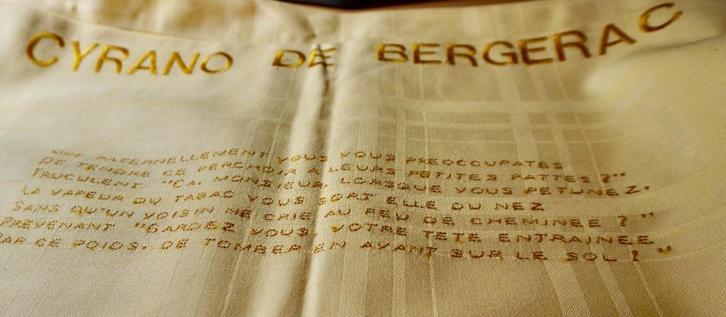 CYRANO DE BERGERAC
QUE PATERNELLEMENT VOUS VOUS PREOCCUPATES
DE TENDRE CE PERCHOIR A LEURS PETITES PATTES ?"
TRUCULENT "CA, MONSIEUR, LORSQUE VOUS PETUNEZ,
LA VAPEUR DU TABAC VOUS SORT ELLE DU NEZ
SANS QU'UN VOISIN NE CRIE AU FEU DE CHEMINEE ?"
PREVENANT "GARDEZ VOUS, VOTRE TETE ENTRAINEE
PAR CE POIDS, DE TOMBER EN AVANT SUR LE SOL !"